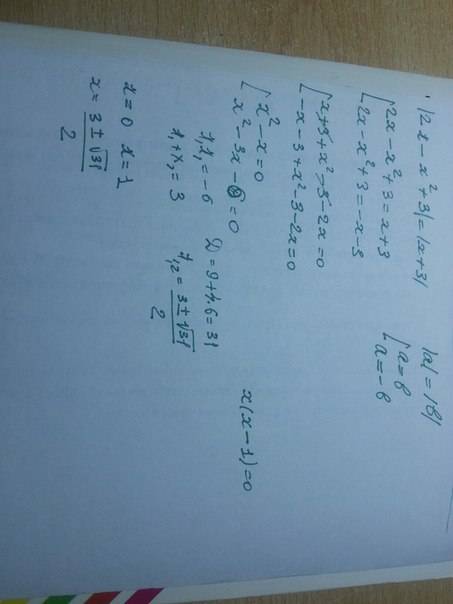 |2x - x² + 3| = |x + 3|
|a| = |b|
[ 2x - x² + 3 = x + 3
[ 2x - x² + 3 = -x - 3
[ a = b
[ a = -b
[ x + 3 + x² - 3 - 2x = 0
[ -x - 3 + x² - 3 - 2x = 0
[ x² - x = 0
[ x² - 3x - 6 = 0
x(x - 1) = 0
x₁x₂ = -6
x₁ + x₂ = 3
D = 9 + 4·6 = 31
x₁,₂ = (3 ± √31)/2
x = 0 x = 1
x = (3 ± √31)/2